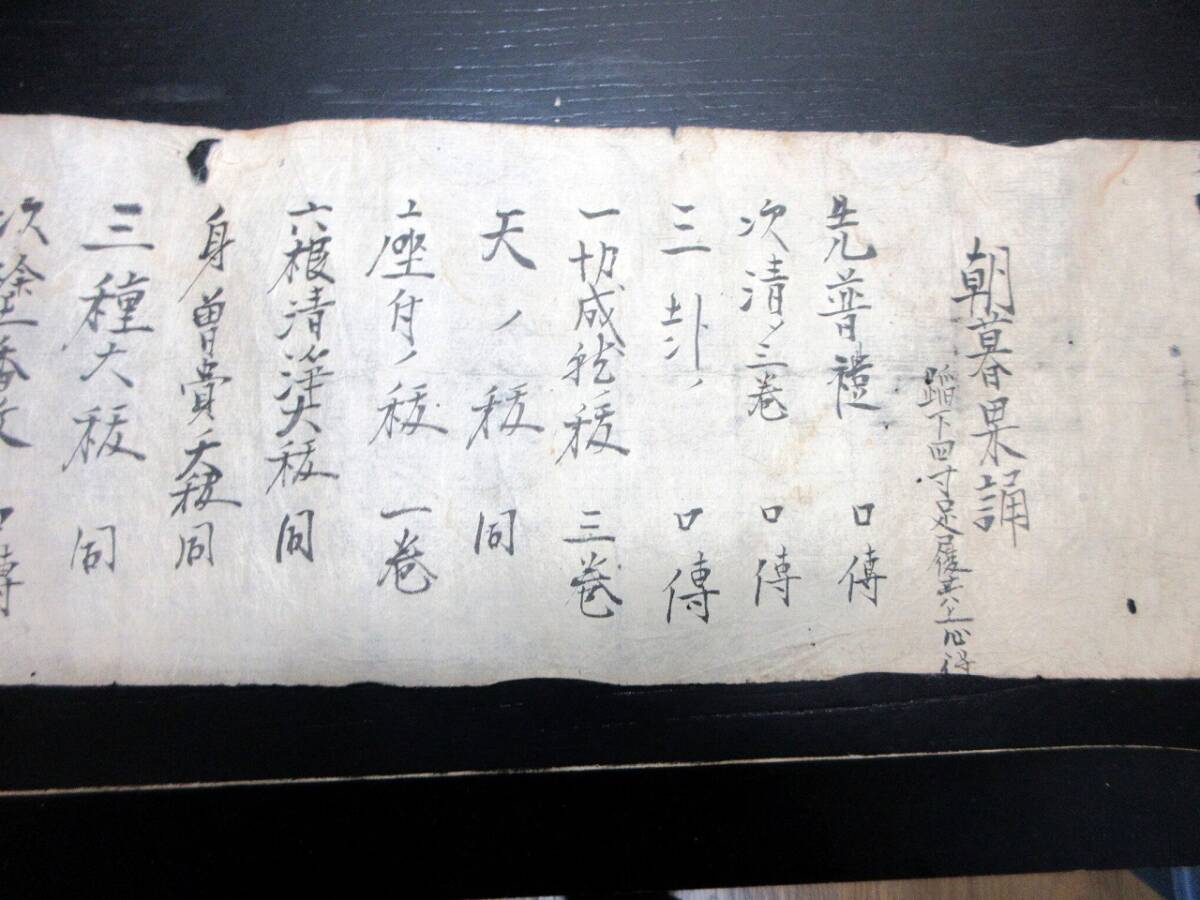 朝暮果誦
蹈下四寸足履其上心得
先普禮 口傳
次清ノ三巻 口傳
三 ノ 口傳
一切成就ノ祓 三巻
天ノ祓 同
座ノ祓 一巻
六根清浄大祓 同
身曽貴大祓 同
三種大祓 同
次塗香文 口傳